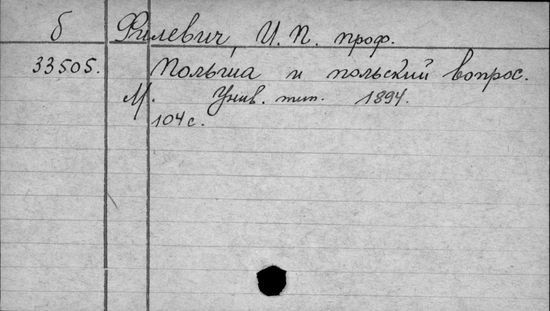 б Филевич, И. П. проф.
33505. Польша и польский вопрос.
М. Унив. тип. 1894.
104 с.